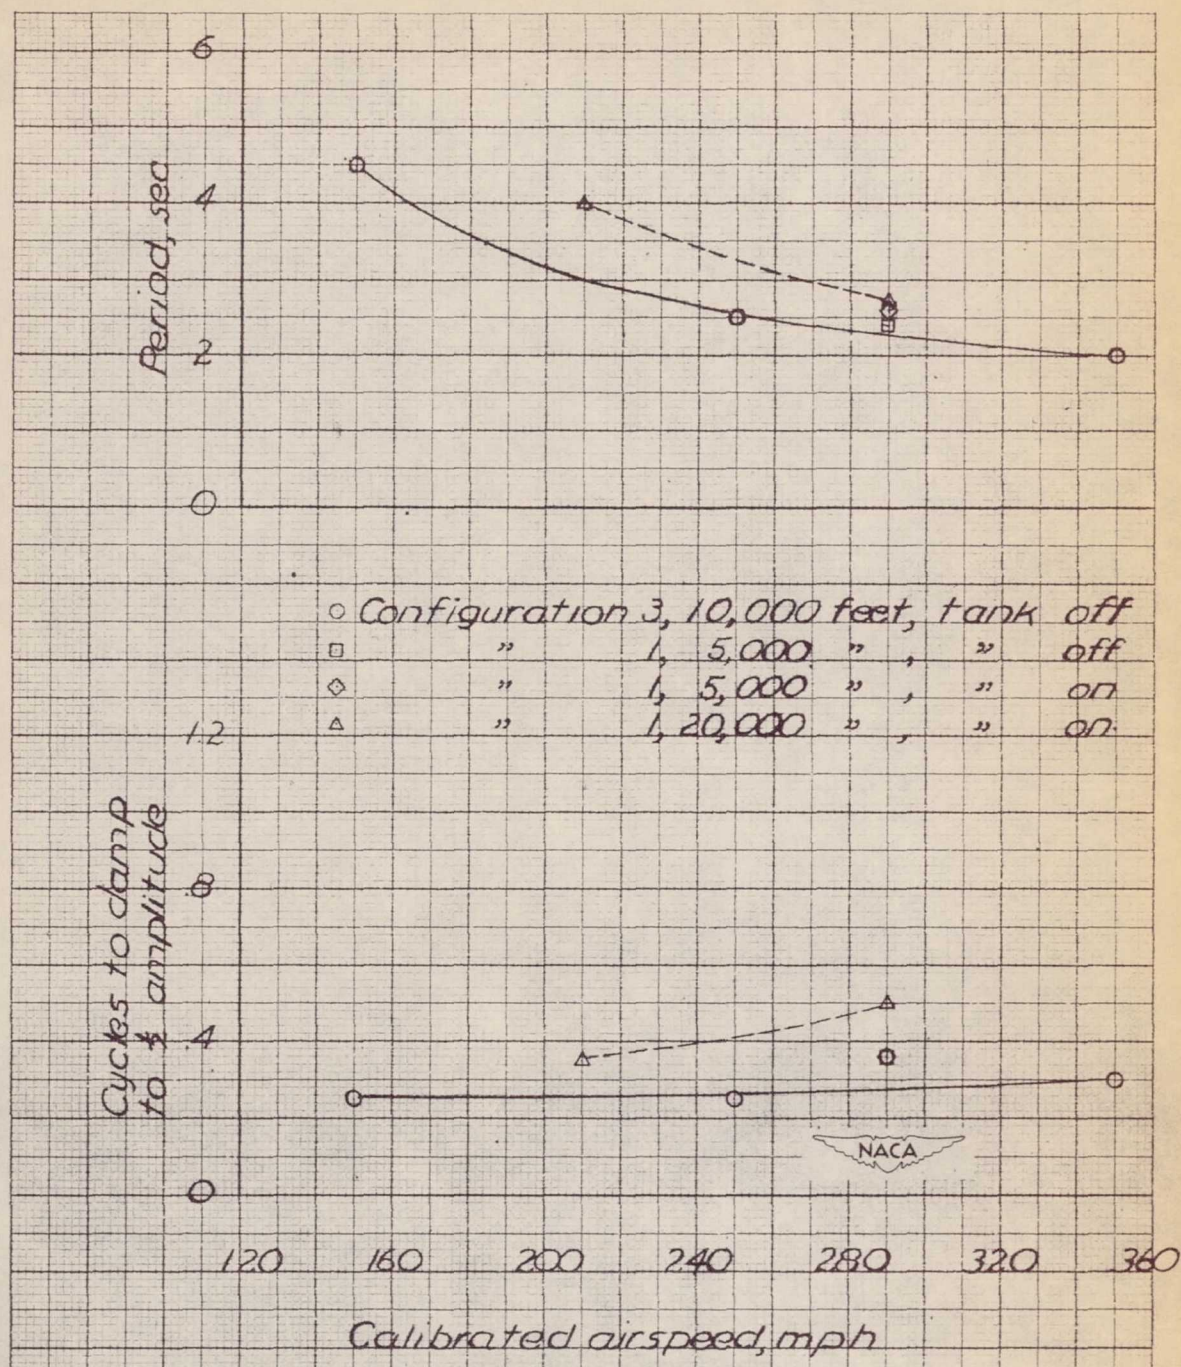 6
4
2
0
Period, sec
○ Configuration 3, 10,000 feet, tank off
□ " 1, 5,000 " , " off
◇ " 1, 5,000 " , " on
△ " 1, 20,000 " , " on.
1.2
.8
.4
0
Cycles to damp
to ½ amplitude
NACA
120 160 200 240 280 320 360
Calibrated airspeed, mph